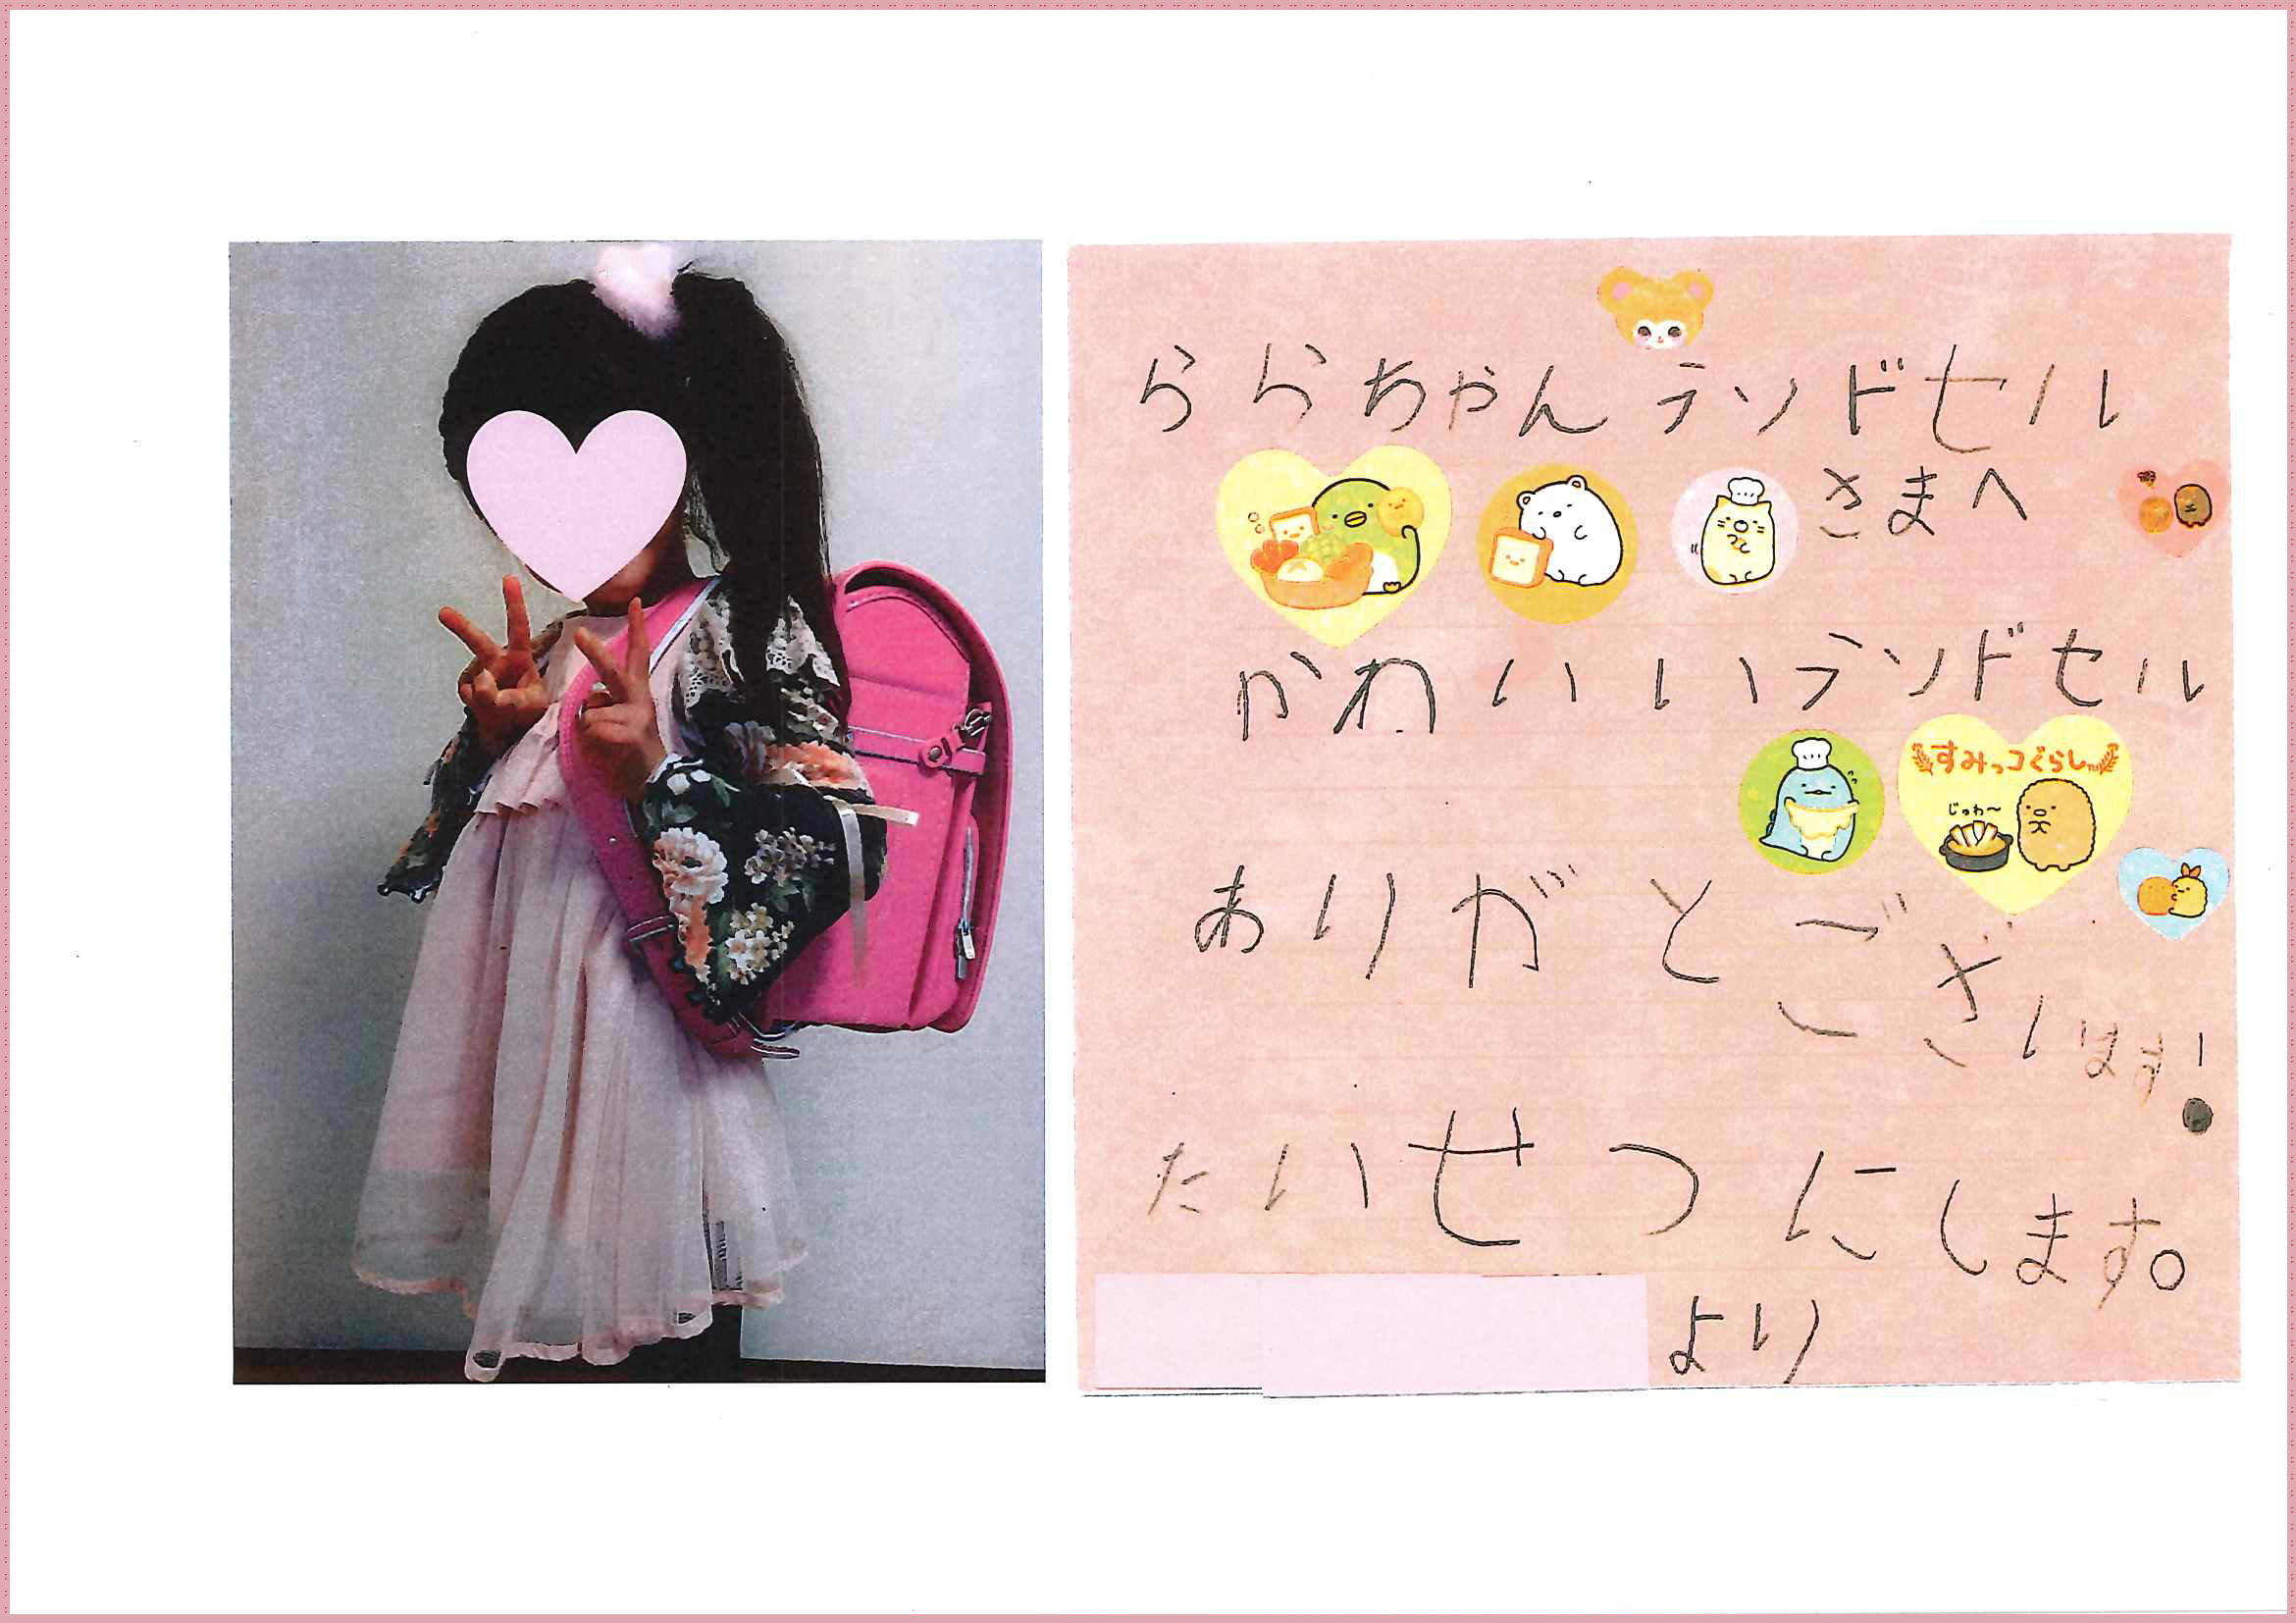 ららちゃんランドセル
さまへ
かわいいランドセル
すみっコぐらし
じゅわ〜
ありがとござ
います!
たいせつにします。
より